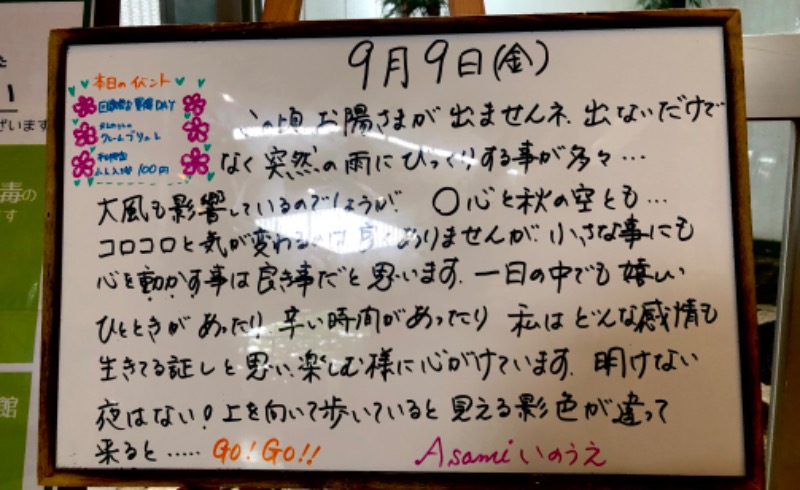 9月9日(金)
本日のイベント
DAY
クレームブリュレ
100円
この頃 お陽さまが 出ませんネ. 出ないだけで
なく 突然の雨にびっくりする事が多々…
大風も影響しているのでしょうが. ○心と秋の空とも…
コロコロと気が変わるのは 良くありませんが. 小さな事にも
心を動かす事は良き事だと思います. 一日の中でも 嬉しい
ひとときが あったり. 辛い時間があったり 私は どんな感情も
生きてる証しと 思い. 楽しむ様に心がけています. 明けない
夜はない! 上を向いて歩いていると 見える影色が違って
来ると…‥ GO! GO!!
Asami いのうえ
毒の
す
館
ざいます